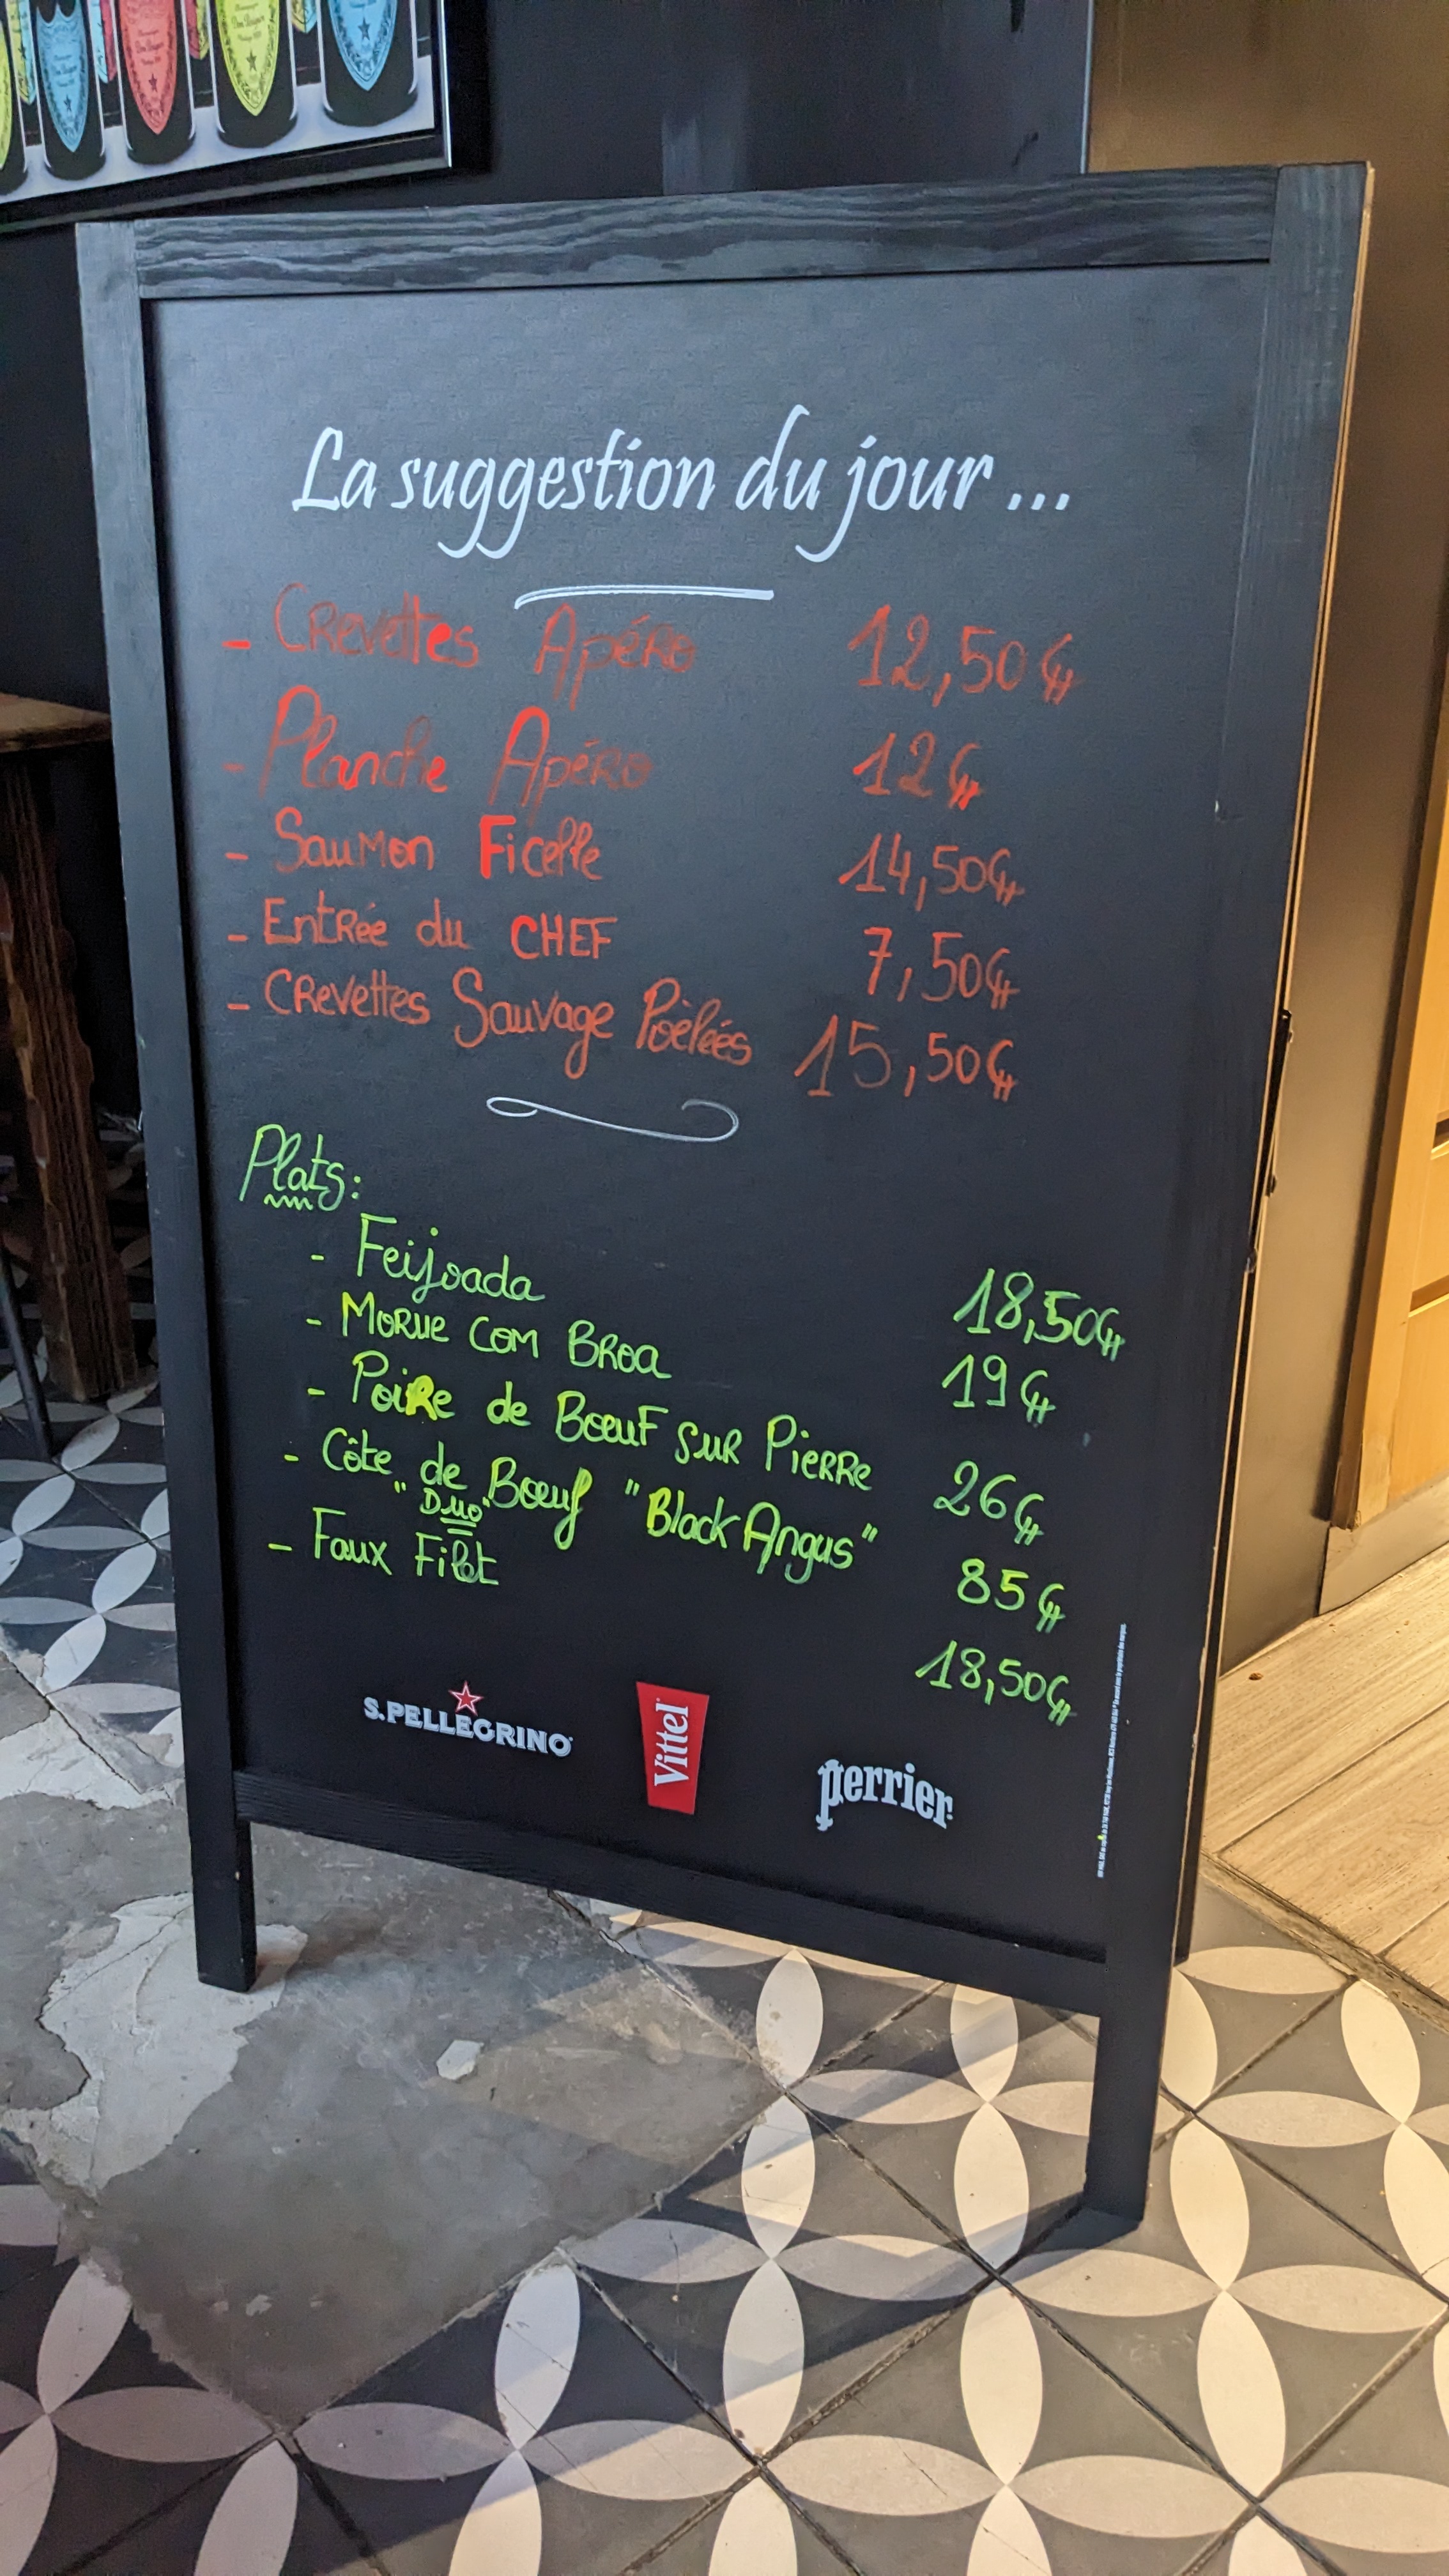 La suggestion du jour ...
- Crevettes Apéro 12,50€
- Planche Apéro 12€
- Saumon Ficelle 14,50€
- Entrée du CHEF 7,50€
- Crevettes Sauvage Poêlées 15,50€
Plats:
- Feijoada 18,50€
- Morue com Broa 19€
- Poire de Boeuf sur Pierre 26€
- Côte de Boeuf "Black Angus" 85€
"Duo"
- Faux Filet 18,50€
S.PELLEGRINO
Vittel
perrier